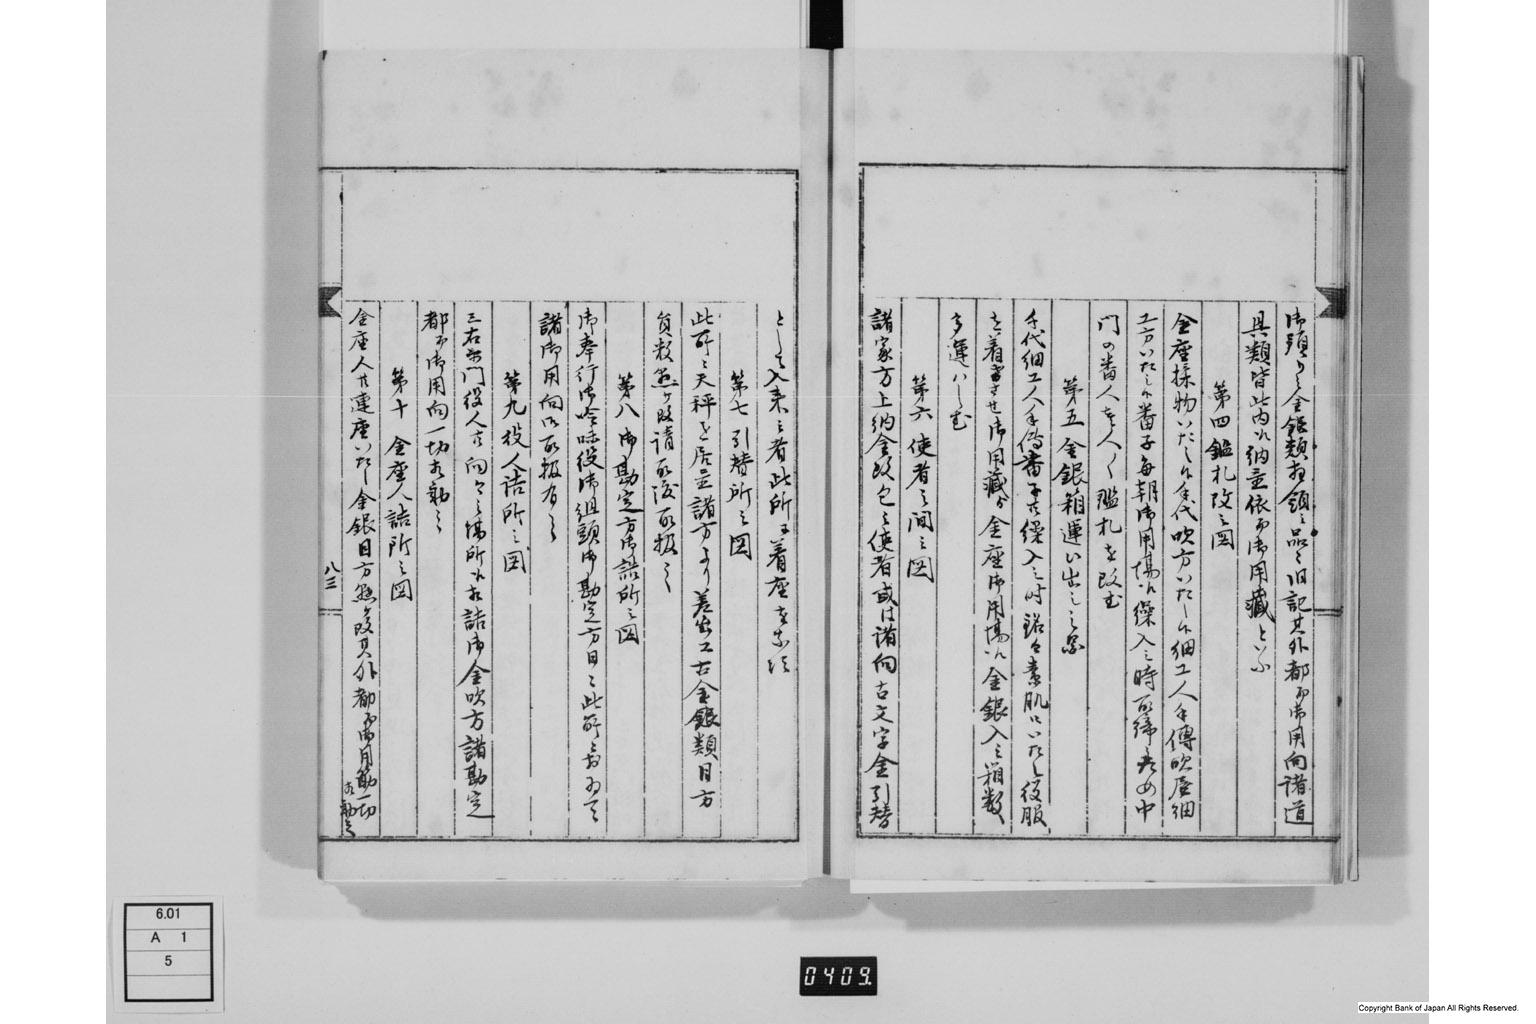 御預り之金銀類拝領之品々旧記其外都而御用向諸道
具類皆此内江納置依而御用藏といふ
第四 鑑札改之図
金座採物いたし候手代吹方いたし候細工人手傳吹屋細
工方いたし候番子毎朝御用場江繰入之時取締之ため中
門の番人壱人ツヽ鑑札を改む
第五 金銀箱運ひ出し之図
手代細工人手傳番子共繰入之時銘々素肌にいたし役服
を着させ御用藏ゟ金座御用場江金銀入之箱数
多運ハしむ
第六 使者之間之図
諸家方上納金改包之使者或は諸向古文字金引替
として入来之者此所江着座を
第七 引替所之図
此所ニ天秤を居置諸方より差出ス古金銀類目方
員数照し改請取渡取扱之
第八 御勘定方御詰所之図
御奉行御吟味役御組頭御勘定方日々此所ニ
諸御用向取扱有之
第九 役人詰所之図
三右衛門役人共向々之場所江相詰御金吹方諸勘定
都而御用向一切相勤之
第十 金座人詰所之図
金座人共連座いたし金銀目方照改其外都而御用筋一切
相勤之
八三
6.01
A 1
5
0409
Copyright Bank of Japan All Rights Reserved.